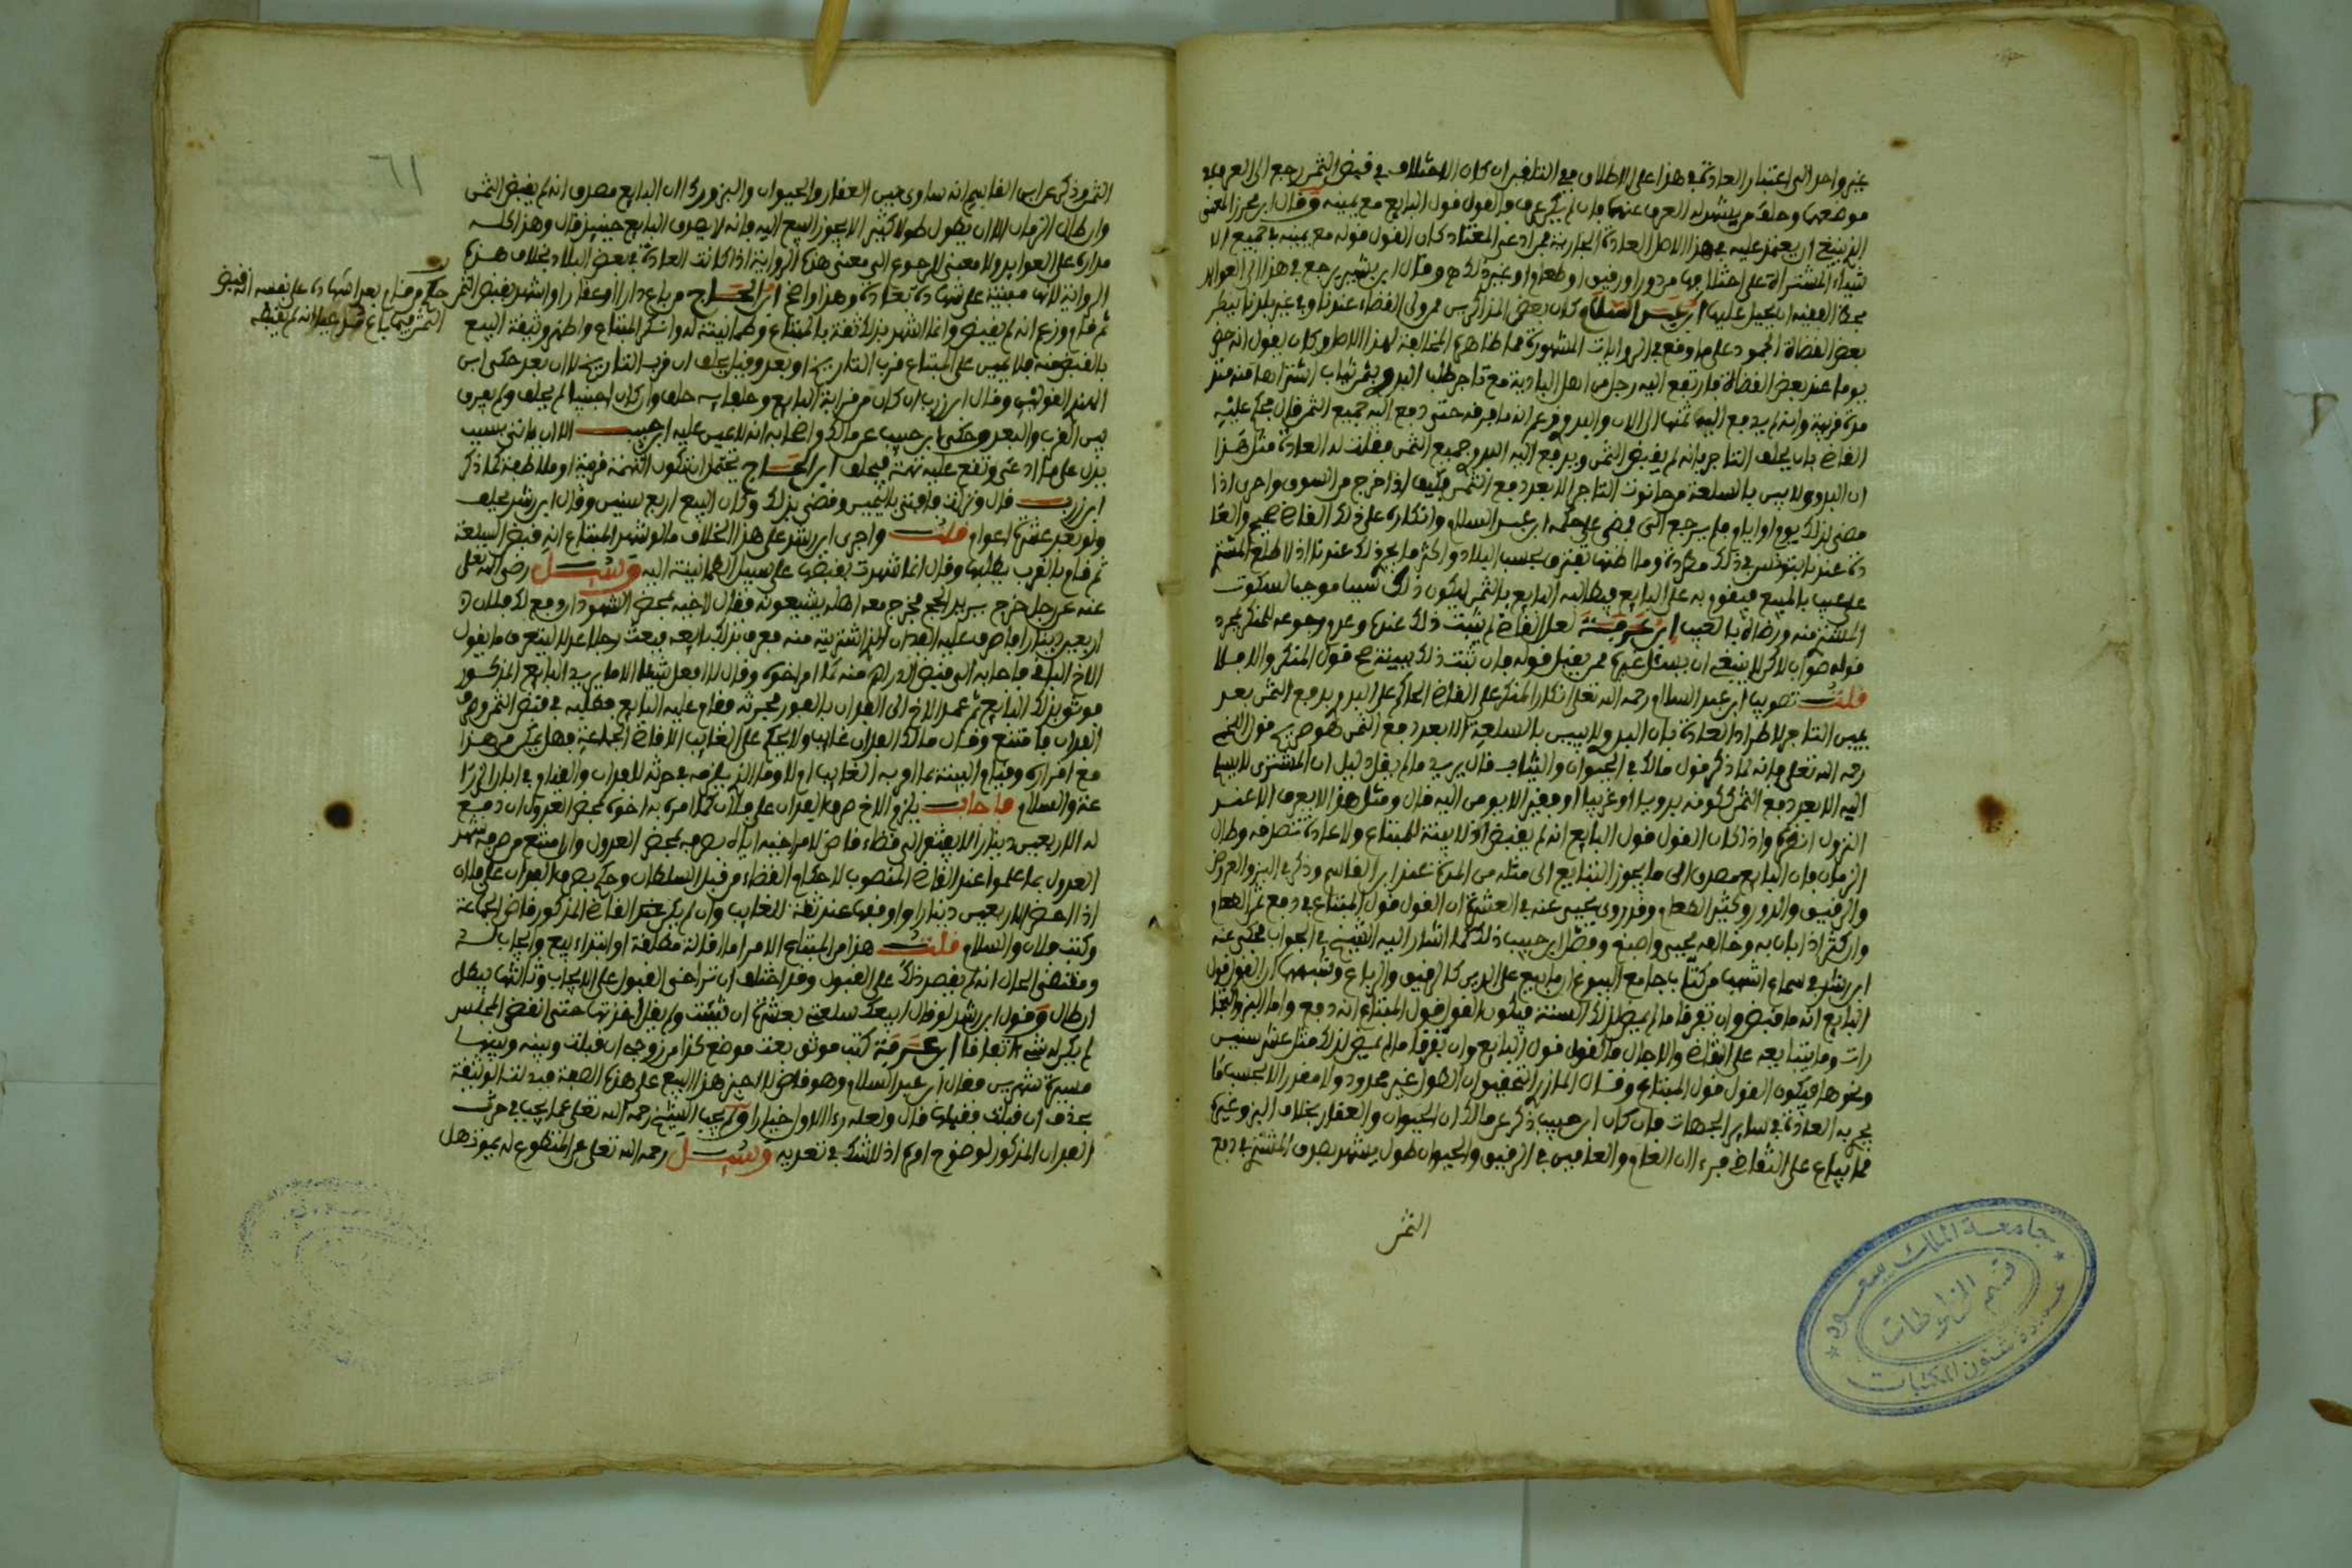 غير واحد الى اعتبار العادة في هذا على الاطلاق ان كان الاختلاف في قبض الثمن رجع الى العرف في
موضعها وحلف من يشهد له العرف عنهما فان لم يكن عرف فالقول قول البايع مع يمينه وقال ابن محرز المعنى
الذي ينبغي ان يعتمد عليه في هذا الاصل العادة الجارية فمن ادعى المعتاد كان القول قوله مع يمينه في جميع الا
شياء المشتراة على اختلافها من دور او رقيق او طعام او غير ذلك وقال ابن بشير يرجع في هذا الى العوايد
ابن عبد السلام كان بعض المذاكرين ممن ولي القضاء عندنا وفي غير بلدنا
بعض القضاة الجمود على ما وقع في الروايات المشهورة المخالفة لهذا الاصل وكان يقول انه حضر
يوما عند بعض القضاة فارتفع اليه رجل من اهل البادية مع تاجر طلب البدوي بثمن ثياب اشتراها منه منذ
مدة قريبة وانه لم يدفع اليه ثمنها الى الان والبدوي زعم انه ما فارقه حتى دفع اليه جميع الثمن قال فحكم عليه
القاضي بان يحلف التاجر انه لم يقبض الثمن ويدفع اليه البدوي جميع الثمن فقلت له العادة مثل هذا
ان البدوي لا يبين بالسلعة من حانوت التاجر الا بعد دفع الثمن فكيف اذا خرج من السوق واحرى اذا
مضى لذلك يوم او ايام فلم يرجع الي ومضى على حكمه ابن عبد السلام وانكاره على ذلك القاضي صحيح والعا
دة عندنا بتونس في ذلك مطردة
على عيب بالمبيع فيقوم به على البايع فيطالبه البايع بالثمن ليكون ذلك سببا موجبا لسكوت
المشتري منه ورضاه بالعيب ابن عرفة لعل القاضي لم يثبت ذلك عنده وعدم رجوعه للمنكر لمجرد
قوله صواب لاكن لا ينبغي ان يسئل غيره ممن يقبل قوله فان ثبت ذلك ببينة صح قول المنكر والا فلا
قلت تصويب ابن عبد السلام رحمه الله تعلى انكار المنكر على القاضي الحاكم على البدوي بدفع الثمن بعد
يمين التاجر لاطراد العادة بان البدوي لا يبين بالسلعة الا بعد دفع الثمن هو صريح قول اللخمي
رحمه الله تعلى فانه لما ذكر قول مالك في الحيوان والثياب قال يريد ما لم يقل دليل ان المشتري لا يسلم
اليه الا بعد دفع الثمن ككونه بدويا او غريبا او فقير الا يومن اليه قال ومثل هذا لا يعرف الا عند
النزول انتهى واذا كان القول قول البايع انه لم يقبض اذ لا بينة للمبتاع ولا عادة تصدقه وطال
الزمان فان البايع مصدق الى ما يجوز التبايع الى مثله من المدة عند ابن القاسم وذكر في البز والعروض
والرقيق والدور وكثير الطعام وقد روى يحيى عنه في العشرة ان القول قول المبتاع في دفع ثمن الطعام
وان كثر اذا بان به وخالفه يحيى واصبغ وفصل ابن حبيب ذلك كما اشار اليه الشيخ في الجواب فحكى عنه
ابن رشد في سماع اشهب من كتاب جامع البيوع ان ما بيع على الدين كالرقيق والرباع وشبهها ان القول قول
البايع انه ما قبض وان تفرقا ما لم يمض لذلك السنة فيكون القول قول المبتاع انه دفع واما البز والتجا
رات وما يتبايعه على التقاضي والاجال فالقول قول البايع وان تفرقا ما لم يمض لذلك مثل عشر سنين
ونحوها فيكون القول قول المبتاع وقال المازري التحقيق ان الطول غير محدود ولا مقدر الا بحسب ما
تجري به العادة في ساير الجهات فان كان ابن حبيب ذكر عن مالك ان الحيوان والعقار بخلاف البز وغيره
مما يباع على التقاضي فيرى ان العام والعامين في الرقيق والحيوان طول يشهد بصدق المشتري في دفع
الثمن
جامعة الملك سعود
قسم المخطوطات
عمادة شئون المكتبات
٦١
الثمن وذكر عن ابن القاسم انه ساوى بين العقار والحيوان والبز وراى ان البايع مصدق انه لم يقبض الثمن
وان طال الزمان الا ان يطول طولا كثيرا لا يجوز البيع اليه فانه لا يصدق البايع حينيذ قال وهذا كله
مداره على العوايد ولا معنى للرجوع الى معنى هذه الرواية اذا كانت العادة في بعض البلاد بخلاف هذه
الرواية لانها مبنية على شهادة بعادة وهذا واضح ابن الحاج من باع دارا او عقارا واشهد بقبض الثمن
ثم قام وزعم انه لم يقبض وانما اشهد بذلك ثقة بالمبتاع وطمانينة له وانكر المبتاع واظهر وثيقة البيع
بالقبض منه فلا يمين على المبتاع قرب التاريخ او بعد وقيل يحلف ان قرب التاريخ لا ان بعد حكى ابن
الهندي القولين وقال ابن زرب ان كان من قرابة البايع وحلفايه حلف وان كان اجنبيا لم يحلف ولم يفرق
بين القرب والبعد وحكى ابن حبيب عن مالك واصحابه انه لا يمين عليه ابن حبيب الا ان ياتي بسبب
يدل على ما ادعى وتقع عليه تهمة فيحلف ابن الحاج يحتمل ان تكون التهمة قرابة او ملاطفة كما ذكر
ابن زرب قال ونزلت فافتى باليمين وقضى بذلك وكان البيع اربع سنين وقال ابن رشد يحلف
ولو بعد عشرة اعوام قلت واجرى ابن رشد على هذا الخلاف ما لو شهد المبتاع انه قبض السلعة
ثم قام بالقرب يطلبها وقال انما شهدت بقبضها على سبيل الطمانينة اليه وسيل رضي الله تعلى
عنه عن رجل خرج يريد الحج فخرج معه اهله يشيعونه فقال لاخيه بمحضر الشهود ان دفع لك فلان
اربعين دينارا فاصرف عليه الفدان الذي اشتريته منه فعرف بذلك بايعه فبعث رجلا عدلا ليتعرف ما يقول
الاخ الباقي فاجابه الى قبض الدراهم منه كما امر اخوه وقال لا افعل شيئا الا ما يريد البايع المذكور
فوثق بذلك البايع ثم عمد الاخ الى الفدان بالعبور فحرثه فقام عليه البايع فطلبه في قبض الثمن وصرف
الفدان فامتنع وقال مالك الفدان غايب ولا يحكم على الغايب الا قاضي الجماعة فهل يمكن من هذا
مع اقراره وقيام البينة بما امر به الغايب ام لا وما الذي يلزمه في حرثه للفدان والقيام في ابان الزرا
عة والسلام فاجاب يلزم الاخ صرف الفدان على فلان كما امره به اخوه بمحضر العدول ان دفع
له الاربعين دينارا لا يفتقر الى قضاء قاض لامر اخيه اياه بصرفه بمحضر العدول وان امتنع من صرفه شهد
العدول بما علموا عند القاضي المنصوب لاحكام القضاء من قبل السلطان وحكم بصرف الفدان على فلان
اذا احضر الاربعين دينارا واوقفها عند ثقة للغايب وان لم يكن غير القاضي المذكور قاضي الجماعة
وكتب فلان والسلام قلت هذا من المبتاع الامر اما اقالة مطلقة او ابتداء بيع وايجاب له
ومقتضى الحال انه لم يقصد ذلك على القبول وقد اختلف ان تراخى القبول على الايجاب وثالثها يبطل
ان طال وقول ابن رشد لو قال ابيعك سلعتي بعشرة ان شيت ولم يقل اخذتها حتى انقضى المجلس
لم يكن له شيء اتفاقا ابن عرفة كتب موثق بعت موضع كذا من زوجي ان قبلت وبينه وبينها
مسيرة شهرين فقال ابن عبد السلام وهو قاض لا اجيز هذا البيع على هذه الصفة فبدلت الوثيقة
بحذف ان قبلت فقبلها قال ولعله رءا الاول خيارا ولم يجب الشيخ رحمه الله تعلى عما يجب في حرث
الفدان المذكور لوضوح امره اذ لا شك في تعديه وسيل رحمه الله تعلى عن المتطوع له
حكم من قام بعد اشهاده على نفسه انه قبض
الثمن فيما باع انه لم يقبضه